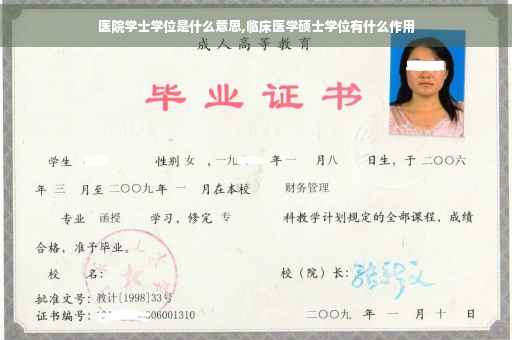 医院学士学位是什么意思,临床医学硕士学位有什么作用
成人高等教育
毕业证书
学生 性别 女 ,一九 年 一 月八 日生,于 二〇〇六
年 三 月至二〇〇九年 一 月在本校 财务管理
专业 函授 学习,修完 专 科教学计划规定的全部课程,成绩
合格,准予毕业。
校 名: 校(院)长:
批准文号:教计[1998]33号
证书编号: 06001310 二〇〇九 年 一 月 十 日